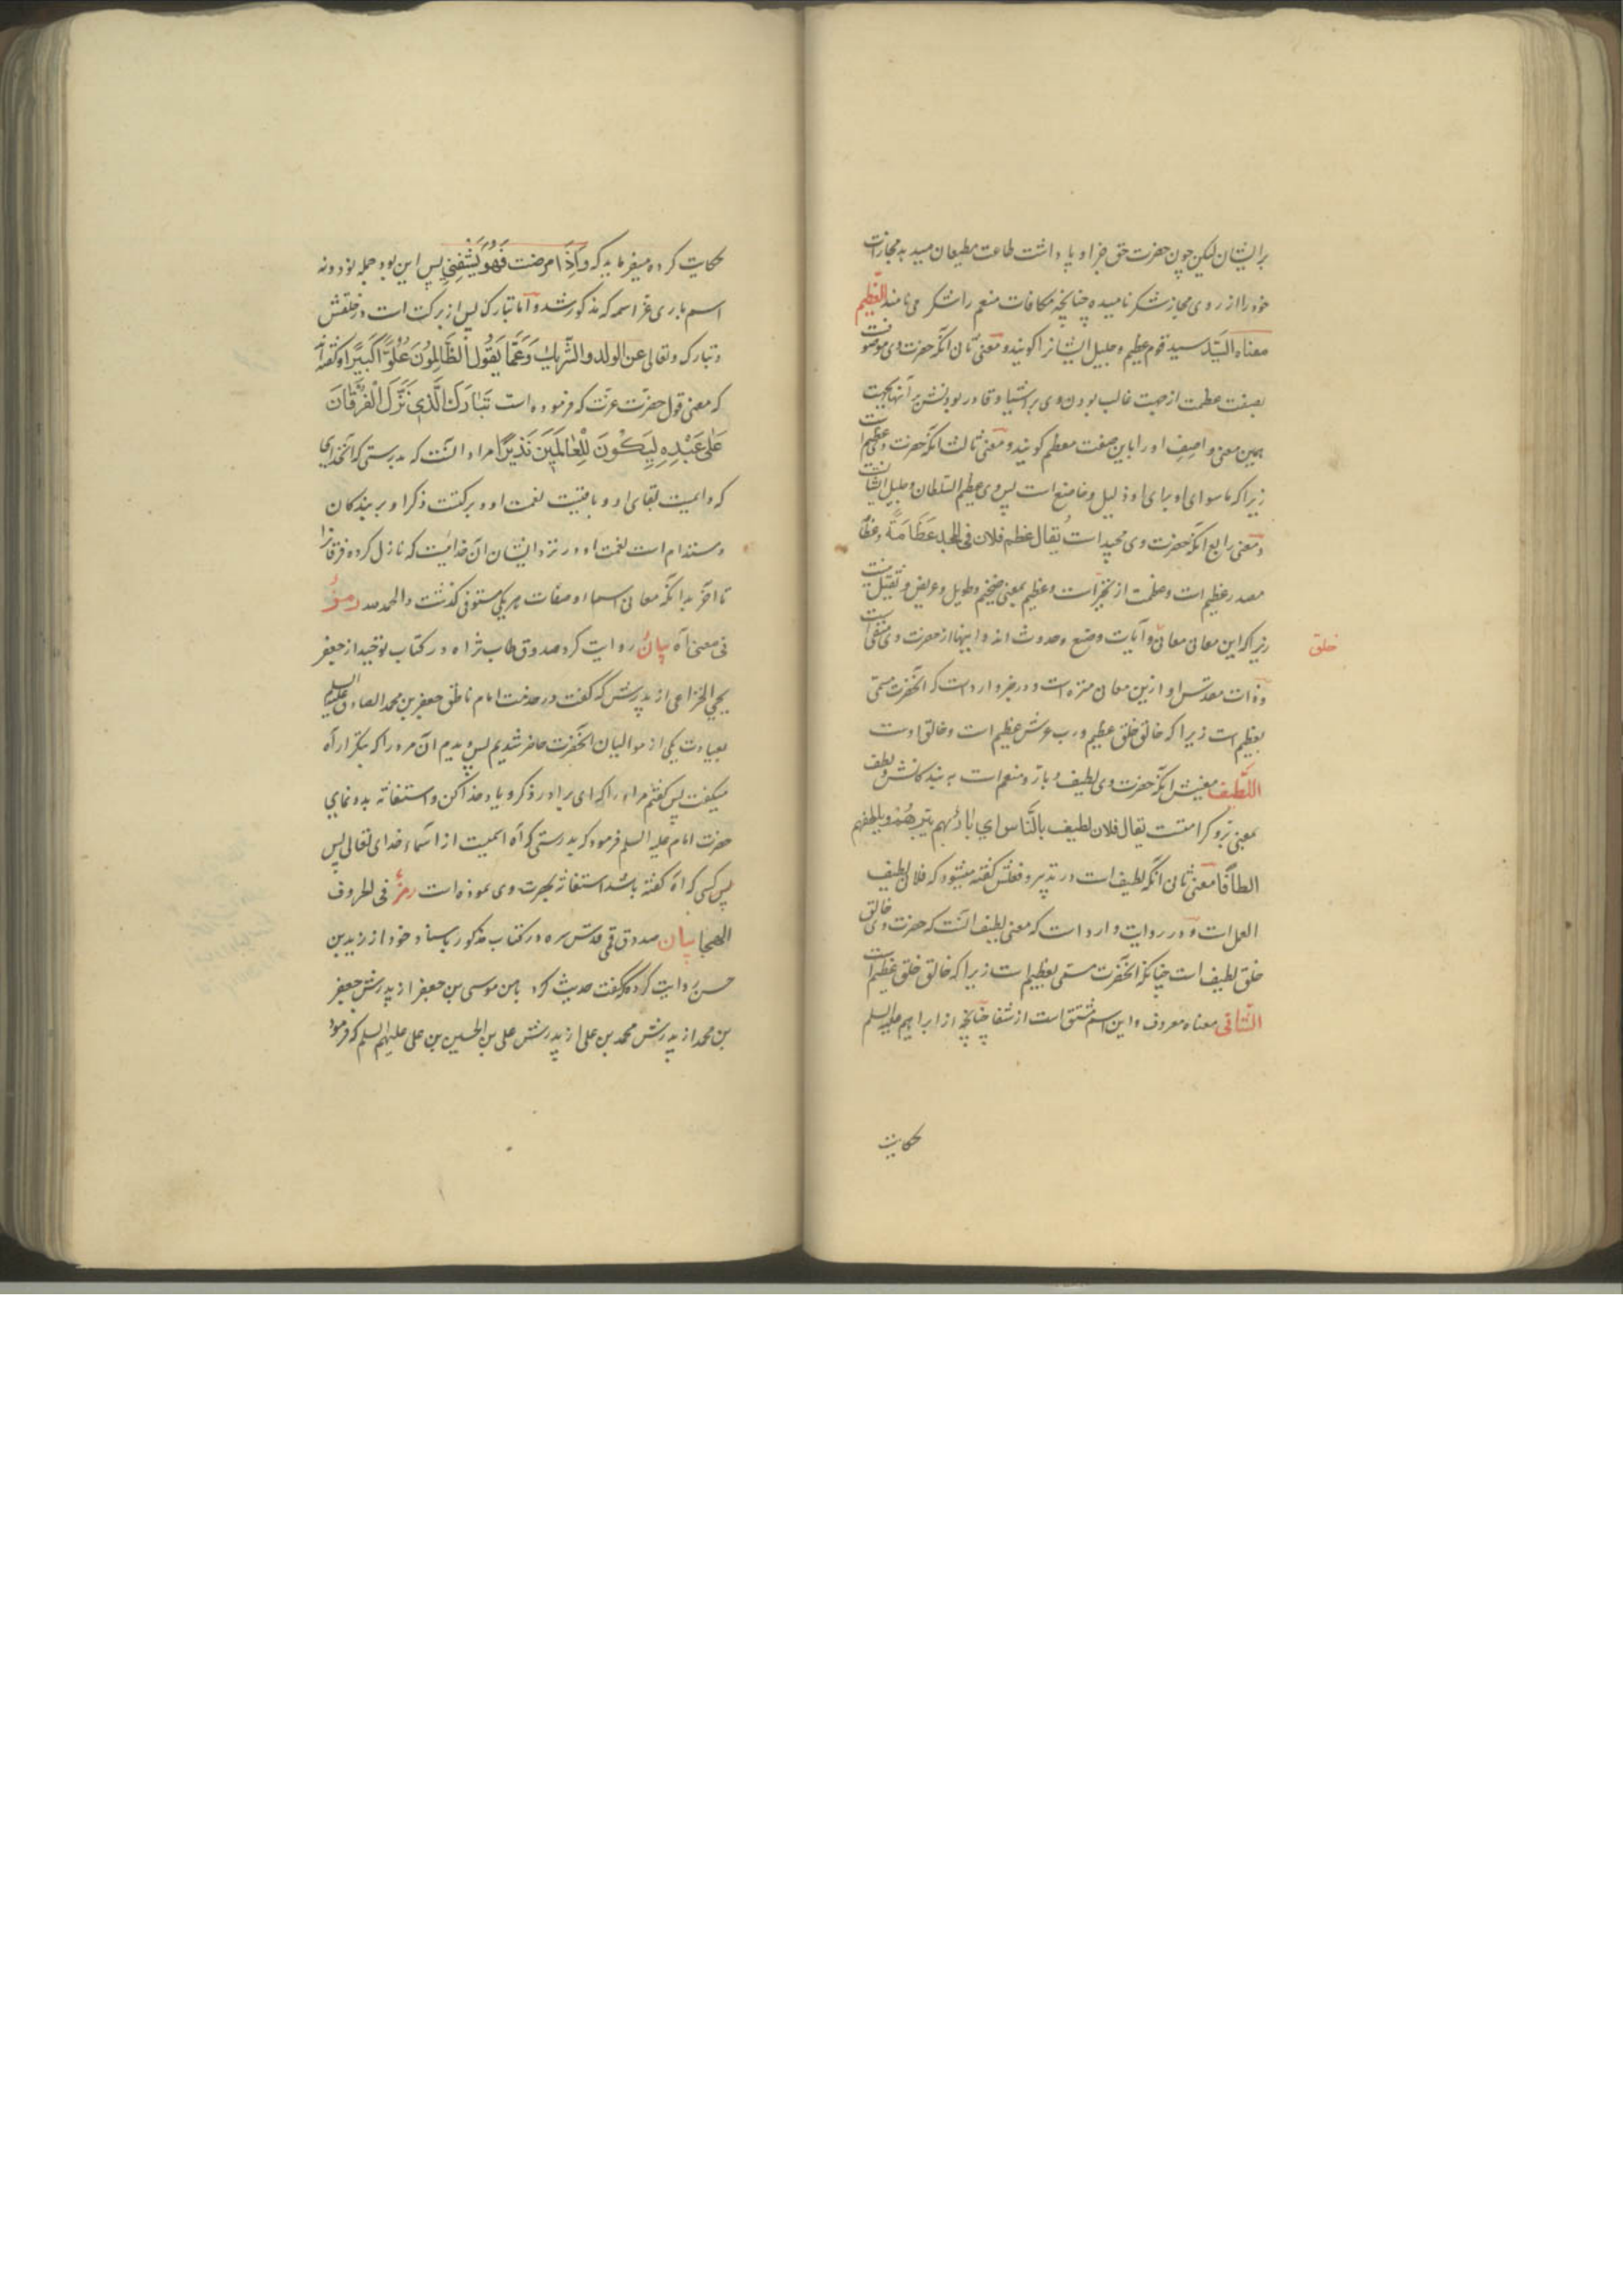 برایشان لیکن چون حضرت حق جزا و پاداشت طاعت مطیعان میدهد مجازات
خود را از روی مجاز شکر نامیده چنانچه مکافات منعم را شکر می نامند العَظیم
معناه السیّد سید قوم عظیم و جلیل ایشانرا کویند و معنی ثانی آنکه حضرت وی موصوفست
بصفت عظمت از جهت غالب بودن وی بر اشیا و قادر بودنش بر آنها بجهت
همین معنی واصِف او را باین صفت معظم کویند و معنی ثالث آنکه حضرت وی عظیم است
زیرا که ما سوای او برای او ذلیل و خاضع است پس وی عظیم السلطان و جلیل الشانست
و معنی رابع آنکه حضرت وی مجید است یُقال عظم فلان فی المجد عَظَامَةً و عظاً
مصدر عظیم است و عظمت از تجبّر است و عظیم بمعنی ضخیم و طویل و عریض و ثقیل نیست
زیرا که این معانی معانی و آیات وضع و حدوث اند و اینها از حضرت وی منتفی است
خلق
و ذات مقدّس او ازین معانی منزه است و در خبر وارد است که آنحضرت مسمّی
بعظیم است زیرا که خالق خلق عظیم و رب عرش عظیم است و خالق اوست
اللّطیف معنیش آنکه حضرت وی لطیف و بارّ و منعم است به بندکانش و لطف
بمعنی برّ و کرامتست یقال فلان لطیف بالنّاس ای بارٌّ بهم یبرّهُم و یلطفهم
الطافًا معنی ثانی آنکه لطیف است در تدبیر و فعلش کفته میشود که فلان لطیف
العمل است و در روایت وارد است که معنی لطیف آنست که حضرت وی خالق
خلق لطیف است چنانکه آنحضرت مسمّی بعظیم است زیرا که خالق خلق عظیم است
الشّافی معناه معروف و این اسم مشتق است از شفا چنانچه از ابراهیم علیه السلم
حکایت
حکایت کرده میفرماید که وَاِذَا مرضت فَهُوَ یَشْفِینِ پس این بود جمله نود و نه
اسم باری عزّ اسمه که مذکور شد و اما تبارک پس از برکت است در خلقش
و تبارک و تعالی عن الولد و الشریك وَ عَمّا یَقُول الظّالِمُونَ عُلُوّاً کَبیراً و کفته اند
که معنی قول حضرت عزّت که فرموده است تَبَارَكَ الَّذِي نَزَّلَ الْفُرْقَانَ
عَلَى عَبْدِهِ لِيَكُونَ لِلْعَالَمِينَ نَذِيرًا مراد آنست که بدرستی که آنخدای
که دایمیست بقای او و باقیست نعمت او و برکتست ذکر او بر بندکان
و مستدام است نعمت او در نزد ایشان آن خدائیست که نازل کرده فرقانرا
تا آخر بدانکه معانی اسماء و صفات هر یکی مستوفی کذشت و الحمد لله رمزٌ
فی معنی آه بیانٌ روایت کرد صدوق طاب ثراه در کتاب توحید از جعفر
یحیی الخزاعی از پدرش که کفت در خدمت امام ناطق جعفر بن محمد الصادق علیه السلم
بعیادت یکی از موالیان آنحضرت حاضر شدیم پس دیدم آن مرد را که بتکرار آه
میکفت پس کفتم مر او را که ای برادر ذکر و یاد خدا کن و استغاثه بدو نمای
حضرت امام علیه السلم فرمود که بدرستی که آه اسمیست از اسماء خدای تعالی پس
پس کسی که آه کفته باشد استغاثه بحضرت وی نموده است رمزٌ فی الحروف
الهجا بیان صدوق قمی قدّس سره در کتاب مذکور باسناد خود از زید بن
حسن روایت کرد که کفت حدیث کرد با من موسی بن جعفر از پدرش جعفر
بن محمد از پدرش محمد بن علی از پدرش علی بن الحسین بن علی علیهم السلم که فرمود